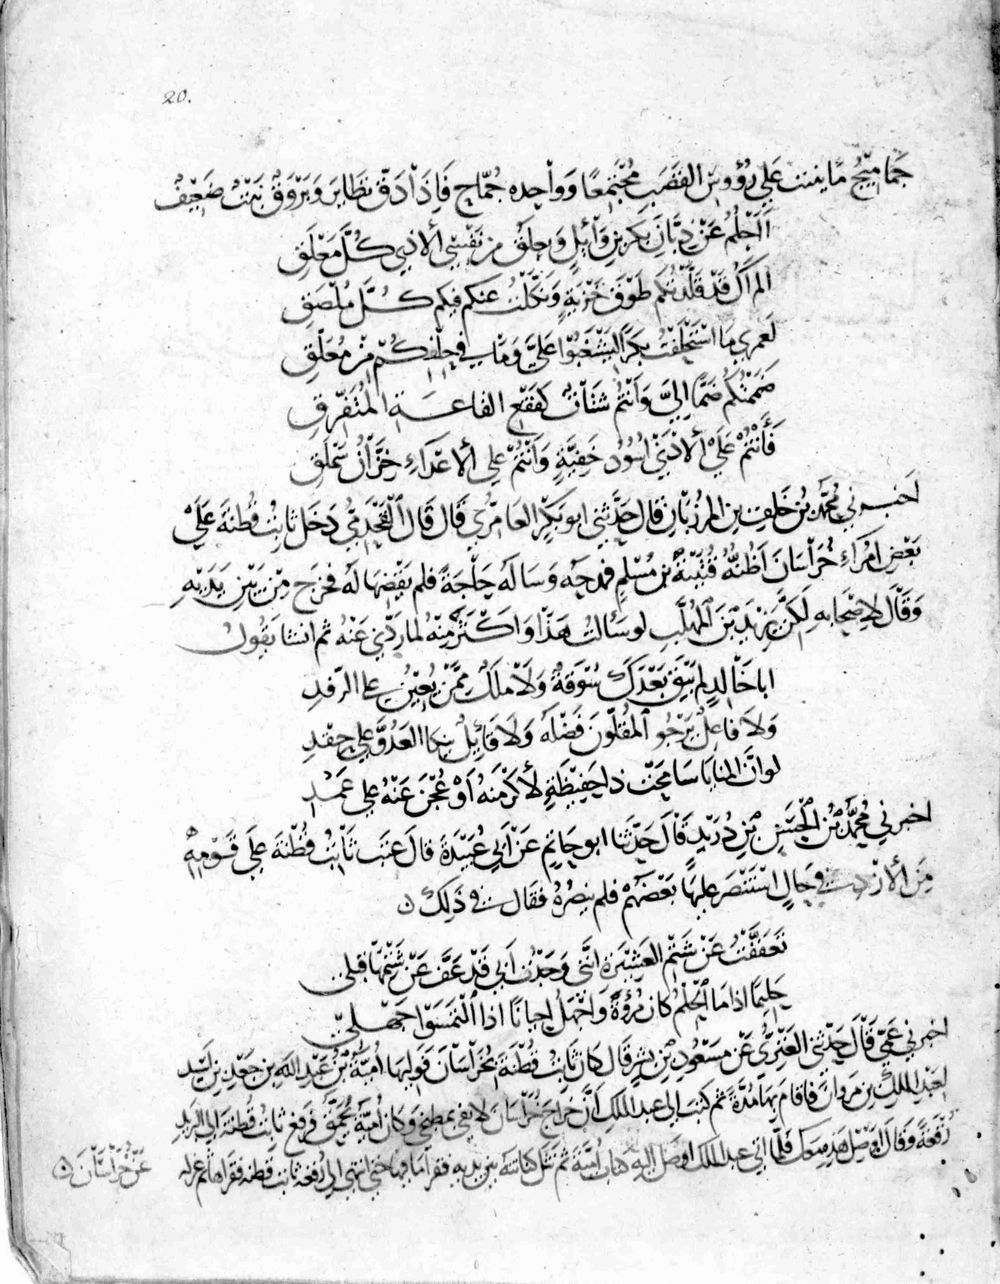 20.
جماميح ما ينبت علي رؤوس القصب مجتمعا وواحده جماح فاذا دق تطاير وبروق نبت ضعيف
احلم عن ذبان بكر بن وائل ويعلق من نفسي الاذي كل معلق
الم اك قد قلدتكم طوق خزية ونكلت عنكم فيكم كل ملصق
لعمري ما استخلفت بكرا ليشغبوا علي وما في حلفكم من معلق
ضممتكم ضما الي وانتم شتات كفقع القاعة المتفرق
فأنتم علي الادني اسود خفية وانتم علي الاعداء خزان سملق
اخبرني محمد بن خلف بن المرزبان قال حدثني ابو بكر العامري قال قال القحذمي دخل ثابت قطنة علي
بعض امراء خراسان اظنه قتيبة بن مسلم فمدحه وساله حاجة فلم يقضها له فخرج من بين يديه
وقال لاصحابه لكن يزيد بن المهلب لو سالت هذا واكثر منه لما ردني عنه ثم انشا يقول
ابا خالد لم يبق بعدك سوقة ولا ملك ممن يعين علي الرفد
ولا فاعل يرجو المقلون فضله ولا قائل ينكا العدو علي حقد
لو ان المنايا سامحت ذا حفيظة لاكرمنه او عجن عنه علي عمد
اخبرني محمد بن الحسن بن دريد قال حدثنا ابو حاتم عن ابي عبيدة قال عتب ثابت قطنة علي قومه
من الأزد في حال استنصر عليها بعضهم فلم ينصره فقال في ذلك
تعففت عن شتم العشيرة انني وجدت ابي قد عف عن شتمها قبلي
حليما اذا ما الحلم كان مروة واجهل احيانا اذا التمسوا جهلي
اخبرني عمي قال حدثني العنزي عن مسعود بن بشر قال كان ثابت قطنة بخراسان فوليها امية بن عبد الله بن خالد بن اسيد
لعبد الملك بن مروان فاقام بها مدة ثم كتب الي عبد الملك ان خراج خراسان لا يفي بمطبخي وكان امية يحمق فرفع ثابت قطنة الي البريد
رقعة وقال اوصل هذه معك فلما اتي عبد الملك اوصل اليه كتاب امية ثم نثل كنانته بين يديه فقرا ما فيها حتي انتهي الي رقعة ثابت قطنة فقراها ثم عزله
عن خراسان